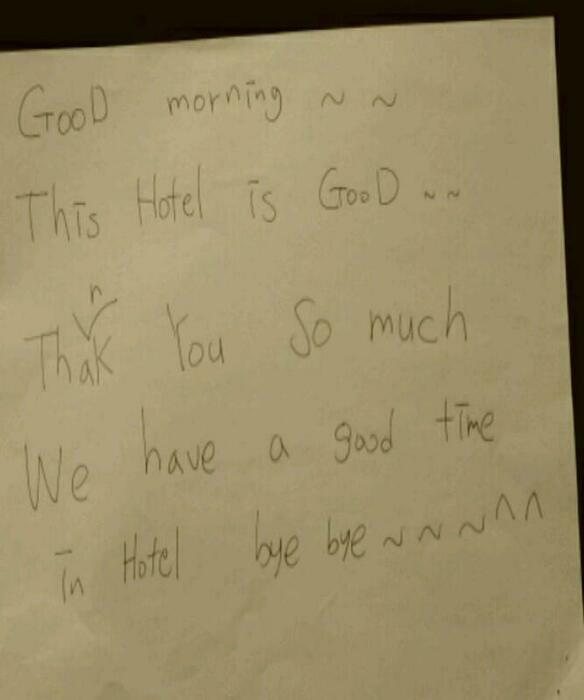 GooD morning ~ ~
This Hotel is GooD ~~
Thank You So much
We have a good time
in Hotel bye bye ~ ~ ~ ^ ^